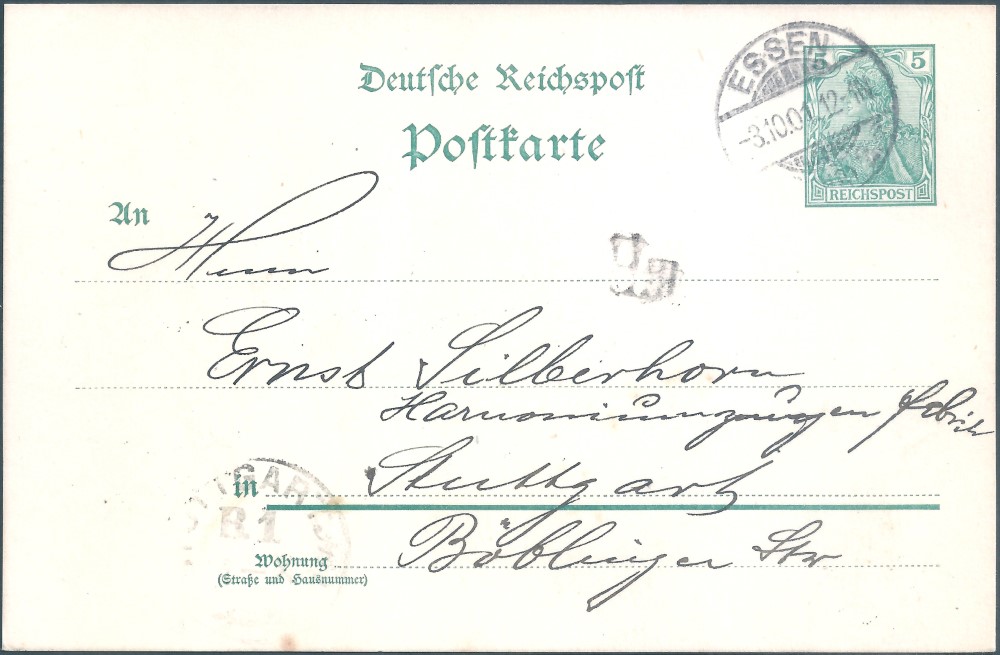 Deutsche Reichspost
Postkarte
ESSEN
-3.10.01. 12-1N.
5 5
REICHSPOST
An
Herrn
Ernst Silberhorn
Harmoniumzungen fabrik
in Stuttgart
STUTTGART
B 1
Böblinger Str
Wohnung
(Straße und Hausnummer)